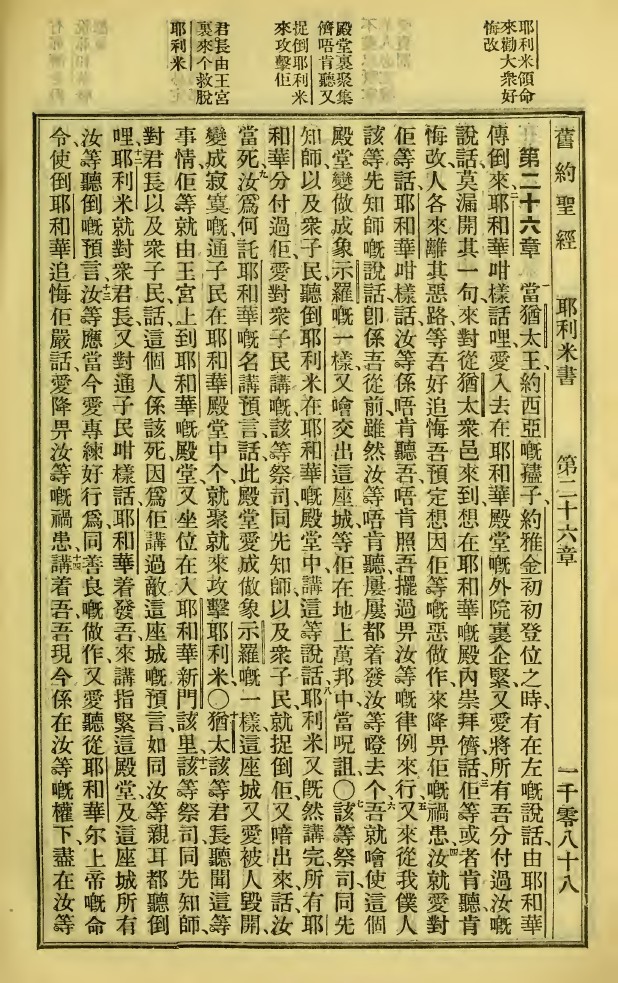 耶利米領命
來勸大衆好
悔改
殿堂裏聚集
儕唔肯聽又
捉倒耶利米
來攻擊佢
君長由王宮
裏來个救脫
耶利米
舊約聖經 耶利米書 第二十六章 一千零八十八
第二十六章 一當猶太王、約西亞嘅𡥧子、約雅金初初登位之時、有在左嘅說話、由耶和華
傳倒來、二耶和華咁樣話哩、愛入去在耶和華殿堂嘅外院裏企緊、又愛將所有吾分付過汝嘅
說話、莫漏開其一句、來對從猶太衆邑來到、想在耶和華嘅殿內崇拜儕話、三佢等或者肯聽肯
悔改、人各來離其惡路、等吾好追悔吾預定想因佢等嘅惡做作、來降畀佢嘅禍患、四汝就愛對
佢等話、耶和華咁樣話、汝等係唔肯聽吾、唔肯照吾擺過畀汝等嘅律例來行、五又來從我僕人
該等先知師嘅說話、卽係吾從前雖然汝等唔肯聽、屢屢都着發汝等蹬去个、六吾就噲使這個
殿堂變做成象示羅嘅一樣、又噲交出這座城等佢在地上萬邦中當呪詛、〇七該等祭司、同先
知師、以及衆子民、聽倒耶利米在耶和華嘅殿堂中、講這等說話、八耶利米又旣然講完所有耶
和華分付過佢愛對衆子民講嘅、該等祭司、同先知師、以及衆子民、就捉倒佢、又喑出來話、汝
當死、九汝爲何託耶和華嘅名講預言、話此殿堂愛成做象示羅嘅一樣、這座城又愛被人毀開、
變成寂寞嘅、通子民在耶和華殿堂中个、就聚就來攻擊耶利米、〇十猶太該等君長、聽聞這等
事情、佢等就由王宮、上到耶和華嘅殿堂、又坐位在入耶和華新門該里、十一該等祭司同先知師、
對君長以及衆子民話、這個人係該死、因爲佢講過敵這座城嘅預言、如同汝等親耳都聽倒
哩、十二耶利米就對衆君長、又對通子民咁樣話、耶和華着發吾來講指緊這殿堂及這座城、所有
汝等聽倒嘅預言、十三汝等應當今愛專練好行爲、同善良嘅做作、又愛聽從耶和華尔上帝嘅命
令、使倒耶和華追悔佢嚴話愛降畀汝等嘅禍患、十四講着吾、吾現今係在汝等嘅權下、盡在汝等